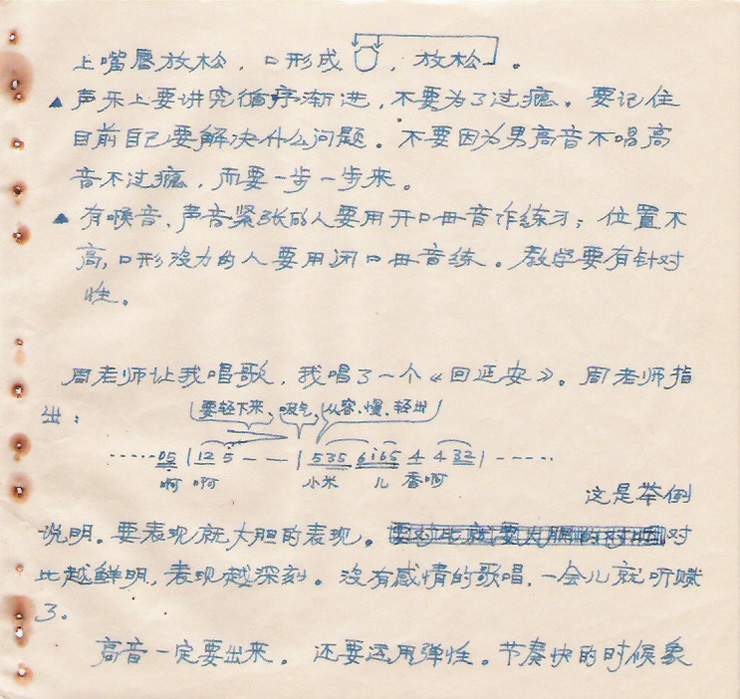 上嘴唇放松，口形成，放松。
▲声乐上要讲究循序渐进，不要为了过瘾。要记住
目前自己要解决什么问题。不要因为男高音不唱高
音不过瘾，而要一步一步来。
▲有喉音、声音紧张的人要用开口母音作练习；位置不
高，口形没力的人要用闭口母音练。教学要有针对
性。
周老师让我唱歌，我唱了一个《回延安》。周老师指
出：
要轻下来、吸气、从容、慢、轻出
……05 | 12 5 — — | 535 6i65 4 4 32 | ……
啊 啊 小米 儿 香啊
这是举例
说明。要表现就大胆的表现。对
比越鲜明，表现越深刻。没有感情的歌唱，一会儿就听腻
了。
高音一定要出来。还要运用弹性。节奏快的时候象